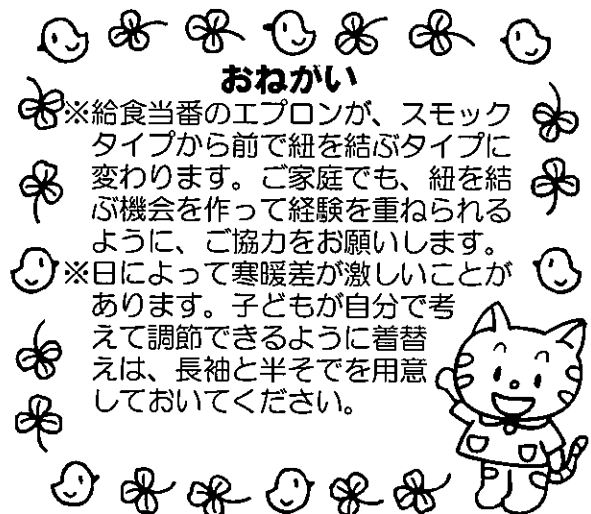 おねがい
※給食当番のエプロンが、スモック
タイプから前で紐を結ぶタイプに
変わります。ご家庭でも、紐を結
ぶ機会を作って経験を重ねられる
ように、ご協力をお願いします。
※日によって寒暖差が激しいことが
あります。子どもが自分で考
えて調節できるように着替
えは、長袖と半そでを用意
しておいてください。